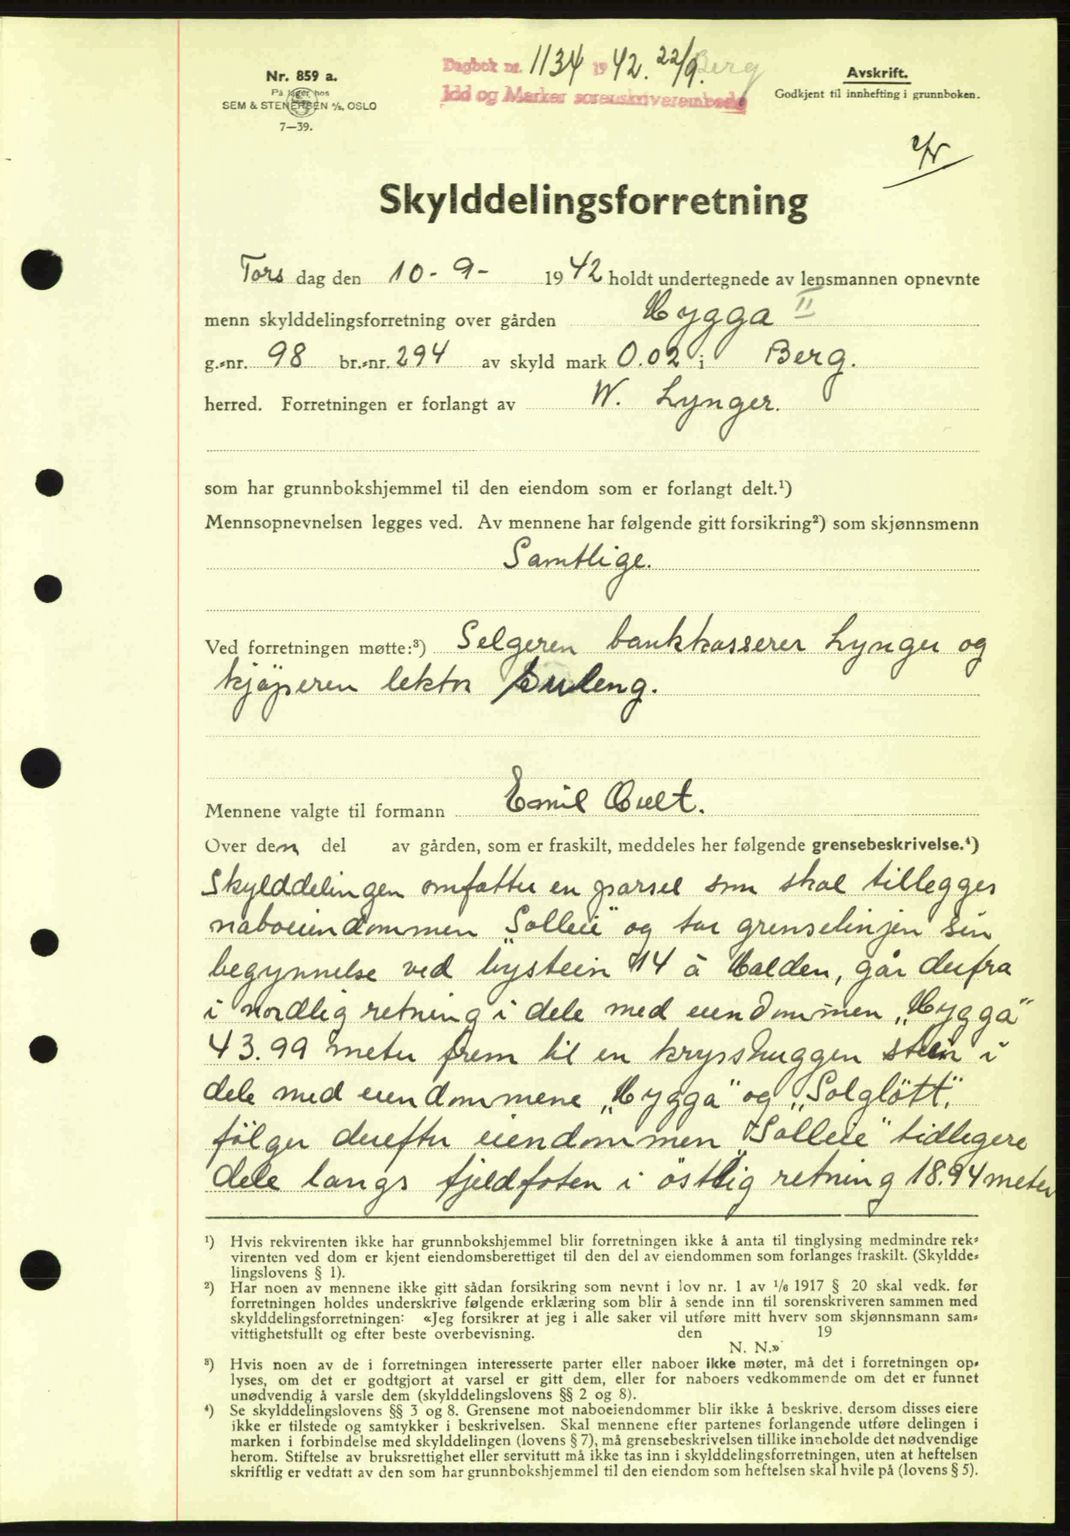 Nr. 859 a.
På lager hos
SEM & STENERSEN A/S, OSLO
7—39.
Dagbok nr. 1134 1942. 22/9. Berg
Idd og Marker sorenskriverembede
Avskrift.
Godkjent til innhefting i grunnboken.
Skylddelingsforretning
Tors dag den 10-9- 1942 holdt undertegnede av lensmannen opnevnte
menn skylddelingsforretning over gården Hygga II
g.-nr. 98 br.-nr. 294 av skyld mark 0.02 i Berg.
herred. Forretningen er forlangt av W. Lynger.
som har grunnbokshjemmel til den eiendom som er forlangt delt.¹)
Mennsopnevnelsen legges ved. Av mennene har følgende gitt forsikring²) som skjønnsmenn
Samtlige.
Ved forretningen møtte:³) Selgeren bankkasserer Lynger og
kjøperen lektor
Mennene valgte til formann Emil Qult.
Over den del av gården, som er fraskilt, meddeles her følgende grensebeskrivelse.⁴)
Skylddelingen omfatter en parsel som skal tillegges
naboeiendommen „Solleie" og tar grenselinjen sin
begynnelse ved bystein 14 å Halden, går derfra
i nordlig retning i dele med eiendommen „Hygga"
43.99 meter frem til en krysshuggen stein i
dele med eiendommene „Hygga" og „Solgløtt",
følger derefter eiendommen „Solleie" tidligere
dele langs fjeldfoten i østlig retning 18.94 meter
¹) Hvis rekvirenten ikke har grunnbokshjemmel blir forretningen ikke å anta til tinglysing medmindre rek-
virenten ved dom er kjent eiendomsberettiget til den del av eiendommen som forlanges fraskilt. (Skyldde-
lingslovens § 1).
²) Har noen av mennene ikke gitt sådan forsikring som nevnt i lov nr. 1 av 1/6 1917 § 20 skal vedk. før
forretningen holdes underskrive følgende erklæring som blir å sende inn til sorenskriveren sammen med
skylddelingsforretningen: «Jeg forsikrer at jeg i alle saker vil utføre mitt hverv som skjønnsmann sam-
vittighetsfullt og efter beste overbevisning. den 19
N. N.»
³) Hvis noen av de i forretningen interesserte parter eller naboer ikke møter, må det i forretningen op-
lyses, om det er godtgjort at varsel er gitt dem, eller for naboers vedkommende om det er funnet
unødvendig å varsle dem (skylddelingslovens §§ 2 og 8).
⁴) Se skylddelingslovens §§ 3 og 8. Grensene mot naboeiendommer blir ikke å beskrive, dersom disses eiere
ikke er tilstede og samtykker i beskrivelsen. Skal mennene efter partenes forlangende utføre delingen i
marken i forbindelse med skylddelingen (lovens § 7), må grensebeskrivelsen tillike inneholde det nødvendige
herom. Stiftelse av bruksrettighet eller servitutt må ikke tas inn i skylddelingsforretningen, uten at heftelsen
skriftlig er vedtatt av den som har grunnbokshjemmel til den eiendom som heftelsen skal hvile på (lovens § 5).